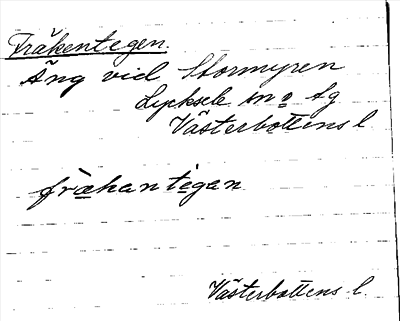 Fräkentegen.
Äng vid Stormyren
Lycksele sn o lg
Västerbottens l
fræ̀kantegan
Västerbottens l.